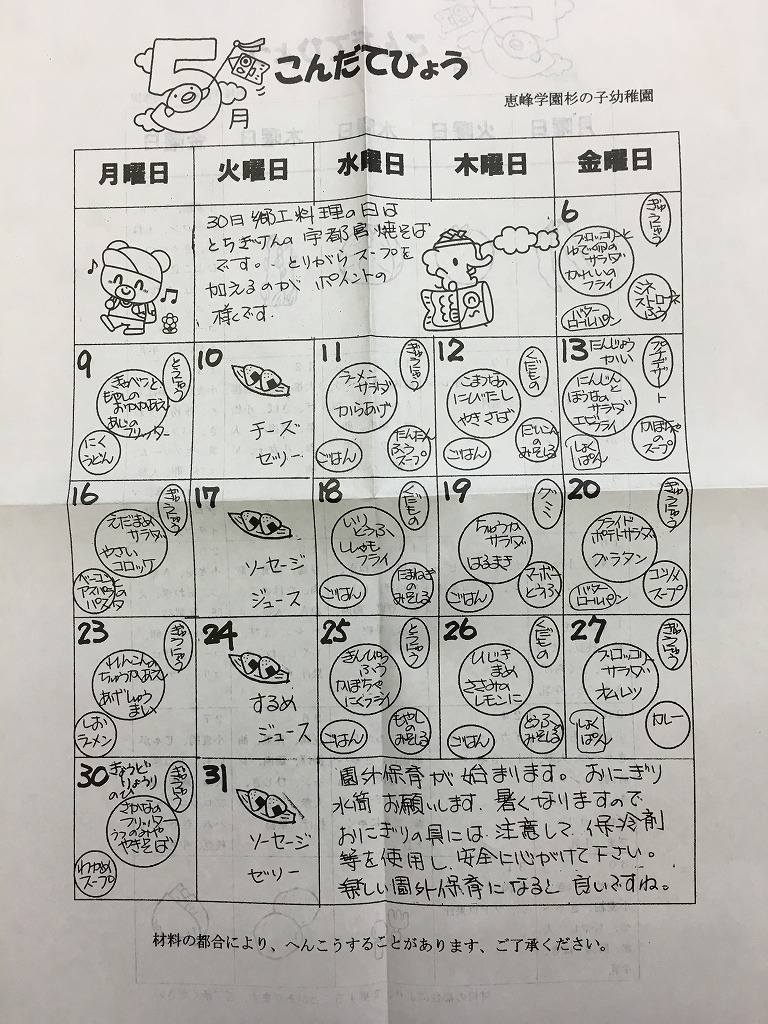 5月
こんだてひょう
恵峰学園杉の子幼稚園
月曜日 火曜日 水曜日 木曜日 金曜日
30日 郷土料理の日は
とちぎけんの宇都宮焼そば
です。とりがらスープを
加えるのが ポイントの
様です.
6
ぎゅうにゅう
ブロッコリーと
ゆで卵の
サラダ
かれいの
フライ
ミネ
ストローネ
ふう
バター
ロールパン
9
とうにゅう
きゃべつと
もやしの
おかかあえ
あじの
フリッター
にく
うどん
10
チーズ
ゼリー
11
ぎゅうにゅう
ラーメン
サラダ
からあげ
ごはん
たんたん
ふう
スープ
12
くだもの
こまつなの
にびたし
やきさば
ごはん
だいこん
のみそしる
13
たんじょう
かい
プチデザート
にんじんと
ほうなの
サラダ
エビ
フライ
しょく
ぱん
かぼちゃ
の
スープ
16
ぎゅうにゅう
えだまめ
サラダ
やさい
コロッケ
ベーコンと
アスパラの
パスタ
17
ソーセージ
ジュース
18
くだもの
いり
どうふ
ししゃも
フライ
ごはん
たまねぎ
のみそしる
19
グミ
ちゅうか
サラダ
はるまき
ごはん
マーボー
どうふ
20
ぎゅうにゅう
フライド
ポテトサラダ
グラタン
バター
ロールパン
コンソメ
スープ
23
ぎゅうにゅう
れんこんの
ちゅうかあえ
あげしゅう
まい
しお
ラーメン
24
するめ
ジュース
25
とうにゅう
きんぴら
ふう
かぼちゃ
にくフライ
ごはん
もやしの
みそしる
26
くだもの
ひじき
まめ
ささみの
レモンに
ごはん
とうふの
みそしる
27
ぎゅうにゅう
ブロッコリー
サラダ
オムレツ
しょく
ぱん
カレー
30
きょうど
りょうり
のひ
ぎゅうにゅう
さかなの
フリッター
うつのみや
やきそば
わかめ
スープ
31
ソーセージ
ゼリー
園外保育が始まります。おにぎり
水筒 お願いします. 暑くなりますので、
おにぎりの具には、注意して、保冷剤
等を使用し、安全に心がけて下さい。
楽しい園外保育になると 良いですね。
材料の都合により、へんこうすることがあります、ご了承ください。